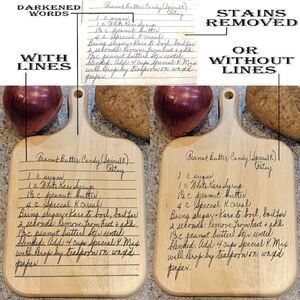 DARKENED
WORDS
STAINS
REMOVED
WITH
LINES
OR
WITHOUT
LINES
Peanut Butter Candy (Special K)
Patsy
1 c sugar
1 c White Karo Syrup
1½ c peanut butter
4 c Special K Cereal
Bring sugar & Karo to boil, boil for
2 seconds remove from heat & add
1½ c peanut butter stir until
blended. Add 4 cups Special K Mix
well. Drop by teaspoon on wax'd
paper.
Peanut Butter Candy (Special K)
Patsy
1 c sugar
1 c White Karo Syrup
1½ c peanut butter
4 c Special K Cereal
Bring sugar & Karo to boil, boil for
2 seconds remove from heat & add
1½ c peanut butter stir until
blended. Add 4 cups Special K Mix
well. Drop by teaspoon on wax'd
paper.
Peanut Butter Candy (Special K)
Patsy
1 c sugar
1 c White Karo Syrup
1½ c peanut butter
4 c Special K Cereal
Bring sugar & Karo to boil, boil for
2 seconds remove from heat & add
1½ c peanut butter stir until
blended. Add 4 cups Special K Mix
well. Drop by teaspoon on wax'd
paper.